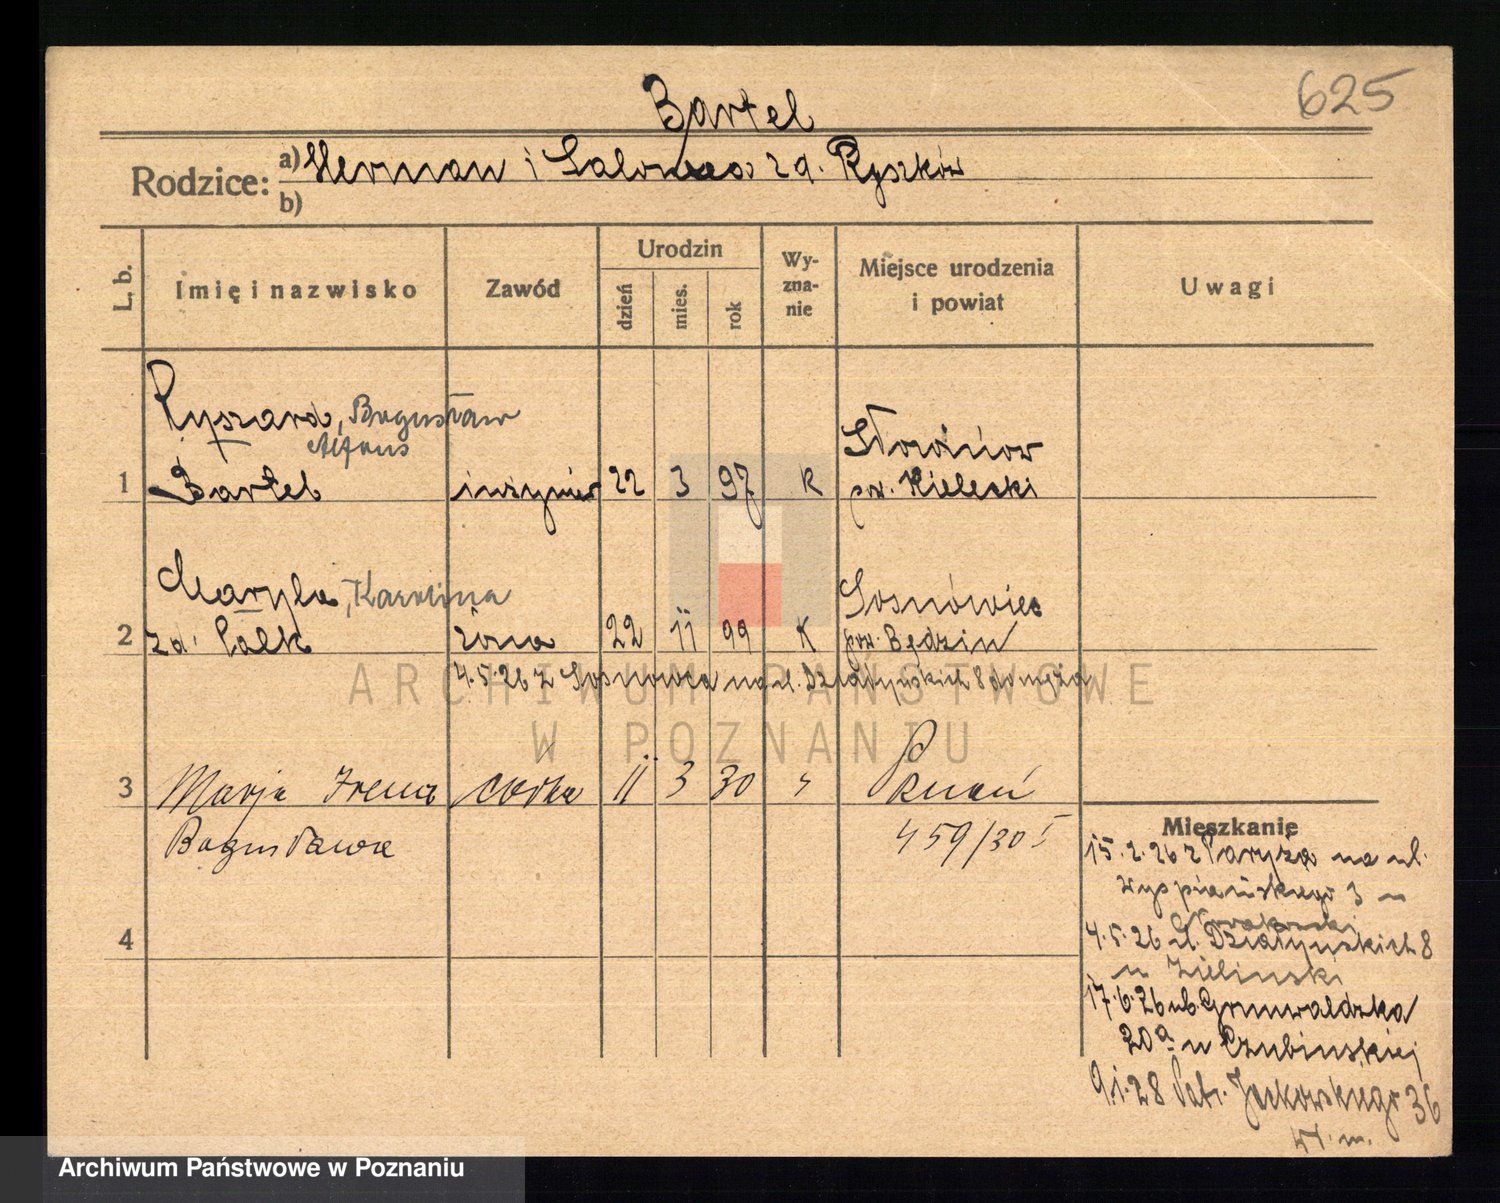 625
Bartel
Rodzice: a) Herman i Salomea z d. Ryszków
b)
L. b.
Imię i nazwisko
Zawód
Urodzin
dzień
mies.
rok
Wy-
zna-
nie
Miejsce urodzenia
i powiat
Uwagi
Ryszard, Bogusław
Alfons
1 Bartel inżynier 22 3 97 K
pow. Kielecki
Maryla, Karolina
Sosnowiec
2 żona 22 II 99 K pow. Będzin
4.5.26 z Sosnowca na ul. Działyńskich 8 do męża
3 Marja Irena córka II 3 30 " Poznań
Bogusława
459/30 I
4
Mieszkanie
15.2.26 z Paryża na ul.
Wyspiańskiego 3 u
4.5.26 ul. Działyńskich 8
u Zieliński
17.6.26 ul. Grunwaldzka
20a u Czubińskiej
9.1.28 Patr. Jackowskiego 36
ARCHIWUM PAŃSTWOWE
W POZNANIU
Archiwum Państwowe w Poznaniu